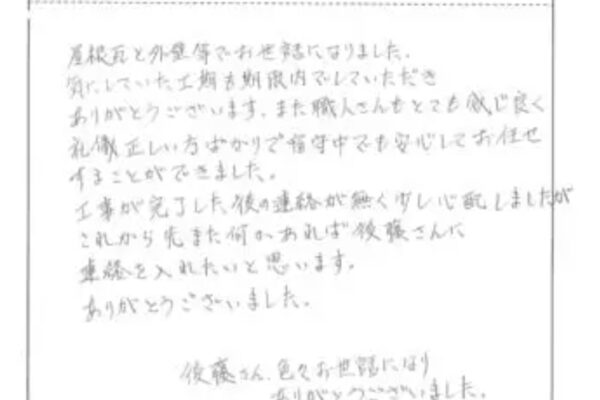 屋根瓦と外壁等でお世話になりました。
気にしていた工期も期限内でしていただき
ありがとうございます。また職人さんもとても感じ良く
礼儀正しい方ばかりで留守中でも安心してお任せ
することができました。
工事が完了した後の連絡が無く少し心配しましたが
これから先また何かあれば後藤さんに
連絡を入れたいと思います。
ありがとうございました。
後藤さん、色々お世話になり
ありがとうございました。